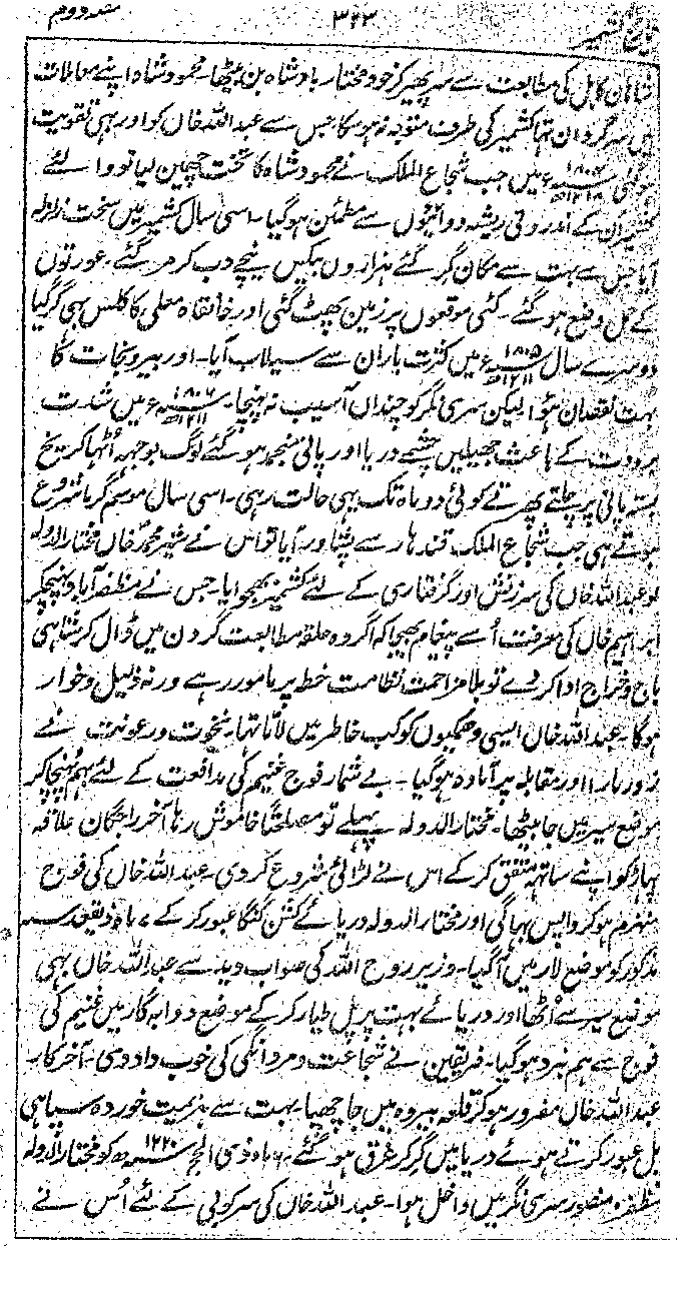 حصہ دوم ۳۲۳ تاریخ کشمیر
شاہان کابل کی متابعت سے سر پھیر کر خود مختار بادشاہ بن بیٹھا۔ محمود شاہ اپنے معاملات
میں سرگردان تھا کشمیر کی طرف متوجہ نہ ہو سکا جس سے عبداللہ خاں کو اور بہی تقویت
ہو گئی ۱۲۱۸ھ میں جب شجاع الملک نے محمود شاہ کا تخت چھین لیا تو والئے
کشمیر ان کے اندرونی ریشہ دوانیوں سے مطمئن ہو گیا۔ اسی سال کشمیر میں سخت زلزلہ
آیا جس سے بہت سے مکان گر گئے ہزاروں بیکس نیچے دب کر مر گئے۔ عورتوں
کے حمل وضع ہو گئے۔ کئی موقعوں پر زمین پھٹ گئی اور خانقاہ معلی کا کلس بہی گر گیا
دوسرے سال ۱۸۰۵ء میں کثرت باران سے سیلاب آیا۔ اور بیرونجات کا
بہت نقصان ہوا لیکن سری نگر کو چنداں آسیب نہ پہنچا۔ ۱۸۰۶ء میں شدت
برودت کے باعث جھیلیں چشمے دریا اور پانی منجمد ہو گئے لوگ بوجہہ اُٹھا کر یخ
بستہ پانی پر چلتے پھرتے کوئی دو ماہ تک یہی حالت رہی۔ اسی سال موسم گرما شروع
ہوتے ہی جب شجاع الملک قندہار سے پشاور آیا تو اس نے شیر محمد خاں مختار الدولہ
کو عبداللہ خاں کی سرزنش اور گرفتاری کے لئے کشمیر بھجوایا۔ جس نے مظفر آباد پہنچکر
ابراہیم خاں کی معرفت اُسے پیغام بھیجا کہ اگر وہ حلقہ متابعت گردن میں ڈال کر شاہی
باج و خراج ادا کر دے تو بلا مزاحمت نظامت خطہ پر مامور رہے ورنہ ذلیل و خوار
ہوگا۔ عبداللہ خاں ایسی دھمکیوں کو کب خاطر میں لاتا تہا۔ نخوت و رعونت نے
زور مارا اور مقابلہ پر آمادہ ہو گیا۔ بے شمار فوج غنیم کی مدافعت کے لئے بہم پہنچا کر
موضع سیر میں جا بیٹھا۔ مختار الدولہ پہلے تو مصلحتاً خاموش رہا آخر راجگان علاقہ
پہاڑ کو اپنے ساتھ متفق کر کے اس نے لڑائی شروع کر دی۔ عبداللہ خاں کی فوج
منہزم ہو کر واپس بہاگی اور مختار الدولہ دریائے کشن گنگا عبور کر کے ۷ ماہ ذیقعد سنہ
مذکور کو موضع لار میں آ گیا۔ وزیر روح اللہ کی صواب دید سے عبداللہ خاں بہی
موضع سیر سے اُٹھا اور دریائے بہت پر پل طیار کر کے موضع دوابہ گار میں غنیم کی
فوج سے ہم نبرد ہو گیا۔ فریقین نے شجاعت و مردانگی کی خوب داد دی۔ آخرکار
عبداللہ خاں مفرور ہو کر قلعہ بیروہ میں جا چھپا۔ بہت سے ہزیمت خوردہ سپاہی
پل عبور کرتے ہوئے دریا میں گر کر غرق ہو گئے۔ ماہ ذی الحج ۱۲۲۰ھ کو مختار الدولہ
مظفر و منصور سری نگر میں داخل ہوا۔ عبداللہ خاں کی سرکوبی کے لئے اُس نے